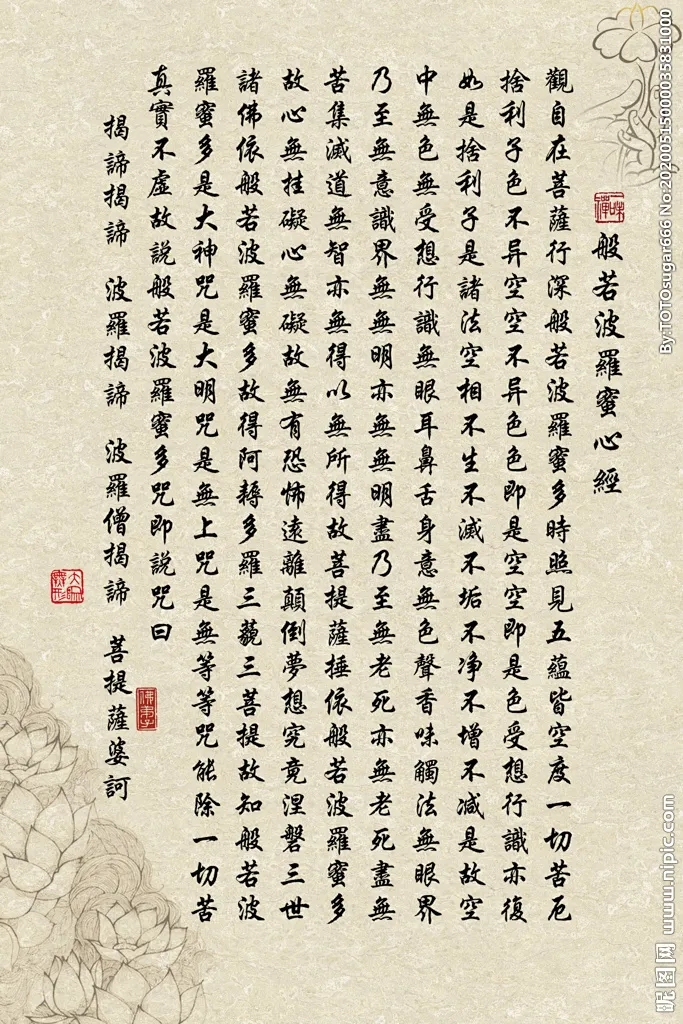 般若波羅蜜心經
觀自在菩薩行深般若波羅蜜多時照見五蘊皆空度一切苦厄
捨利子色不异空空不异色色即是空空即是色受想行識亦復
如是捨利子是諸法空相不生不滅不垢不净不增不减是故空
中無色無受想行識無眼耳鼻舌身意無色聲香味觸法無眼界
乃至無意識界無無明亦無無明盡乃至無老死亦無老死盡無
苦集滅道無智亦無得以無所得故菩提薩捶依般若波羅蜜多
故心無挂礙心無礙故無有恐怖遠離顛倒夢想究竟涅磐三世
諸佛依般若波羅蜜多故得阿耨多羅三藐三菩提故知般若波
羅蜜多是大神咒是大明咒是無上咒是無等等咒能除一切苦
真實不虛故說般若波羅蜜多咒即說咒曰
揭諦揭諦 波羅揭諦 波羅僧揭諦 菩提薩婆訶
佛弟子
By:TOTOsugar666 No:20200515000035831000
昵图网 www.nipic.com